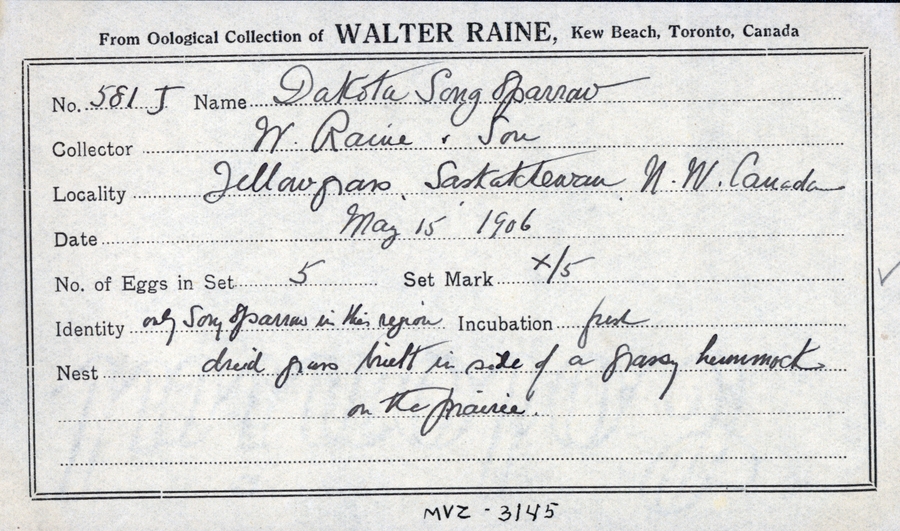 From Oological Collection of WALTER RAINE, Kew Beach, Toronto, Canada
No. 581 J Name Dakota Song Sparrow
Collector W. Raine & Son
Locality Yellowgrass, Saskatchewan N.W. Canada
Date May 15 1906
No. of Eggs in Set 5 Set Mark x/5
Identity only Song Sparrow in this region Incubation fresh
Nest dried grass built in side of a grassy hummock
on the prairie.
MVZ - 3145